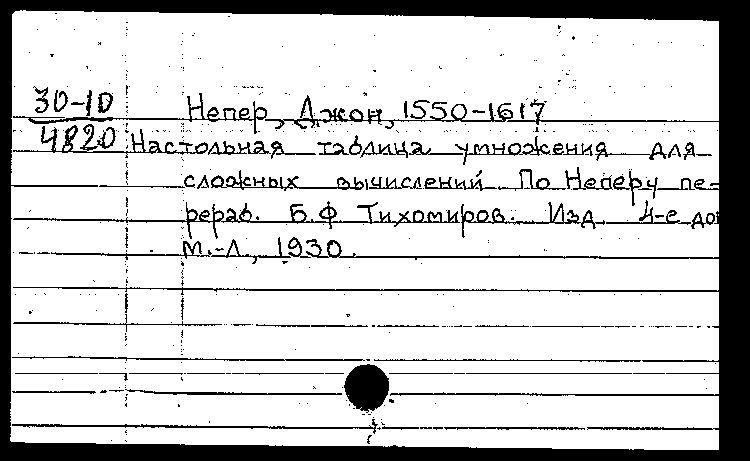 30-10
4820
Непер, Джон, 1550-1617
Настольная таблица умножения для
сложных вычислений По Неперу пе-
рераб. Б.Ф Тихомиров. Изд. 4-е доп
М.-Л., 1930.